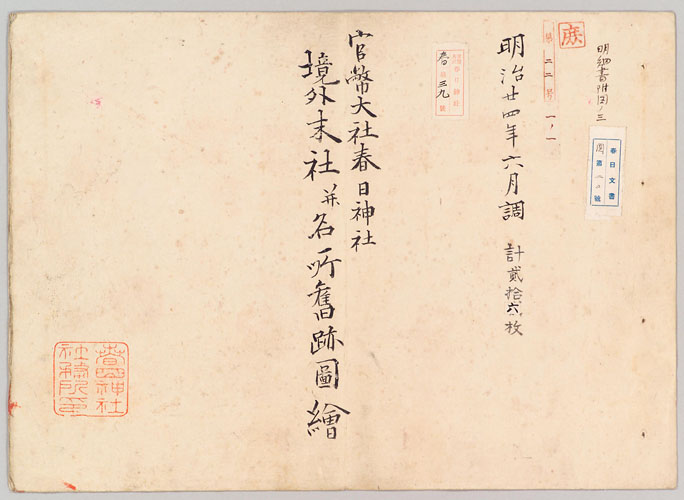 明細書附図ノ三
春日文書
図第 號
庶
第二二号
一ノ一
明治廿四年六月調 計貳拾六枚
春日神社
春 三九 號
官幣大社春日神社
境外末社并名所舊跡圖繪
春日神社
社務所印